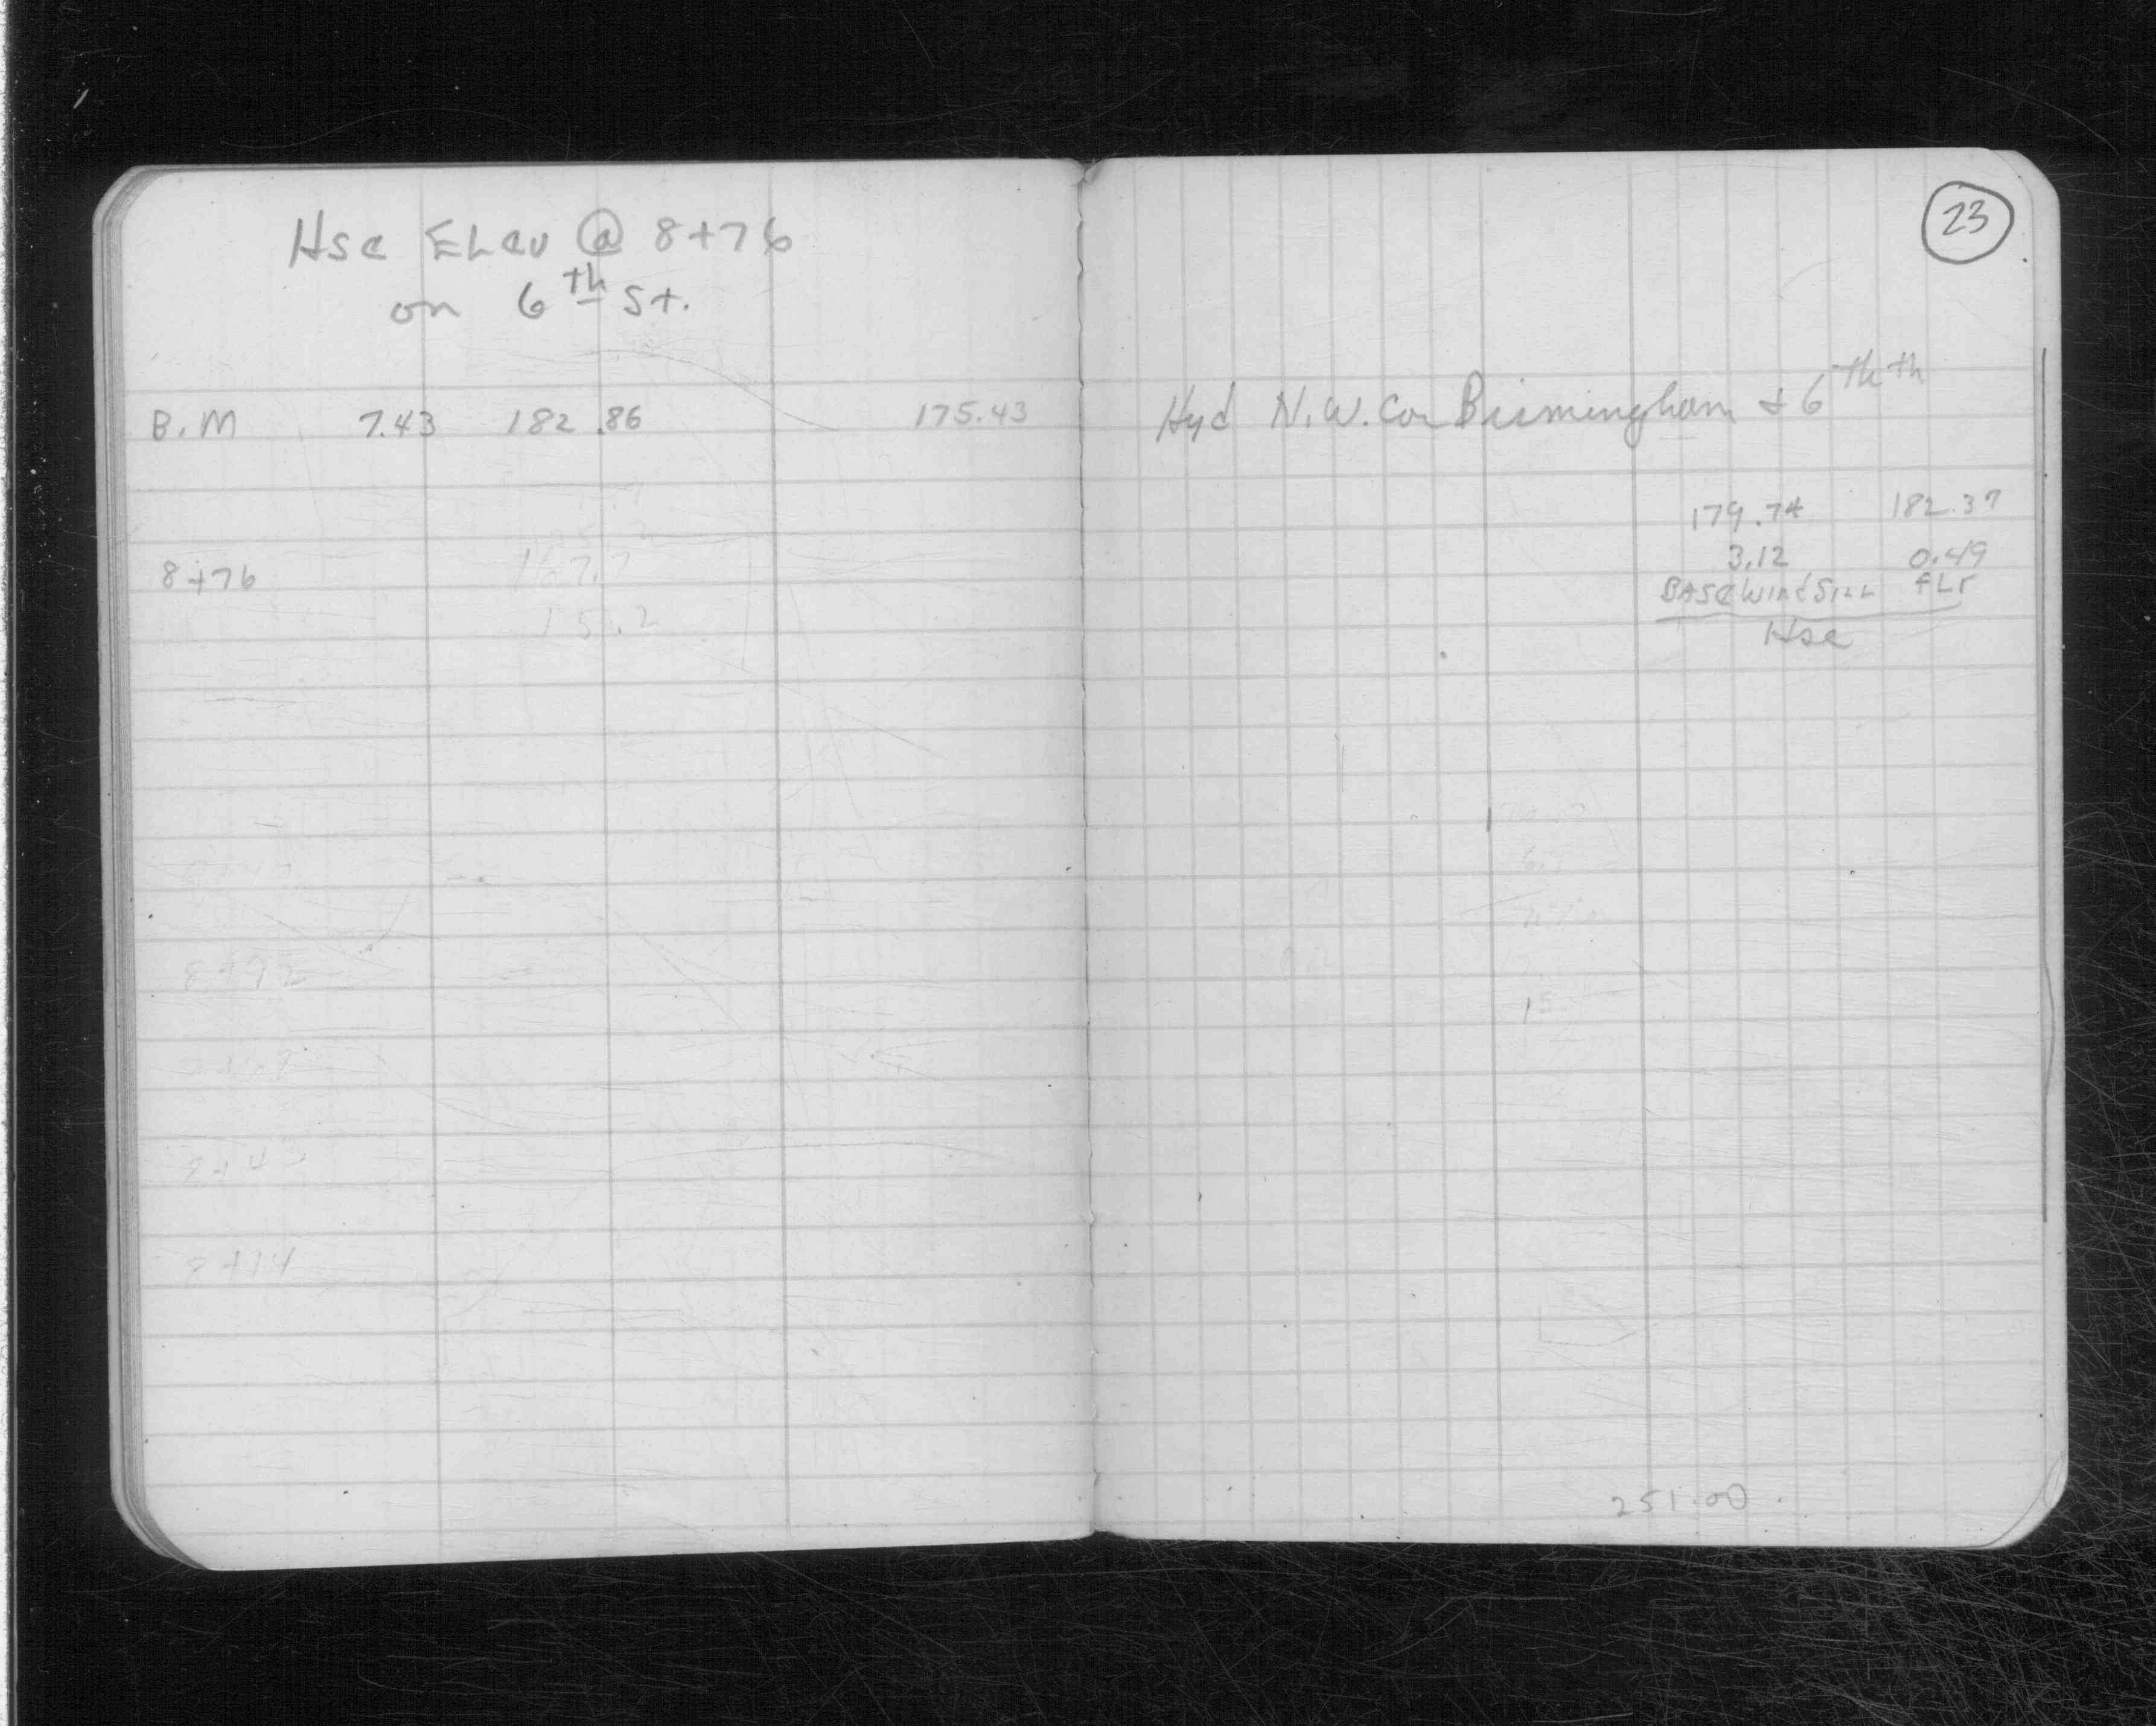 Hse ELev @ 8+76
on 6th St.
B.M 7.43 182.86 175.43
8+76 167.7
15.2
8+92
8+14
23
Hyd N.W. Cor Birmingham & 6th th
179.74 182.37
3.12 0.49
BASE WINd SILL fLr
Hse
251.00